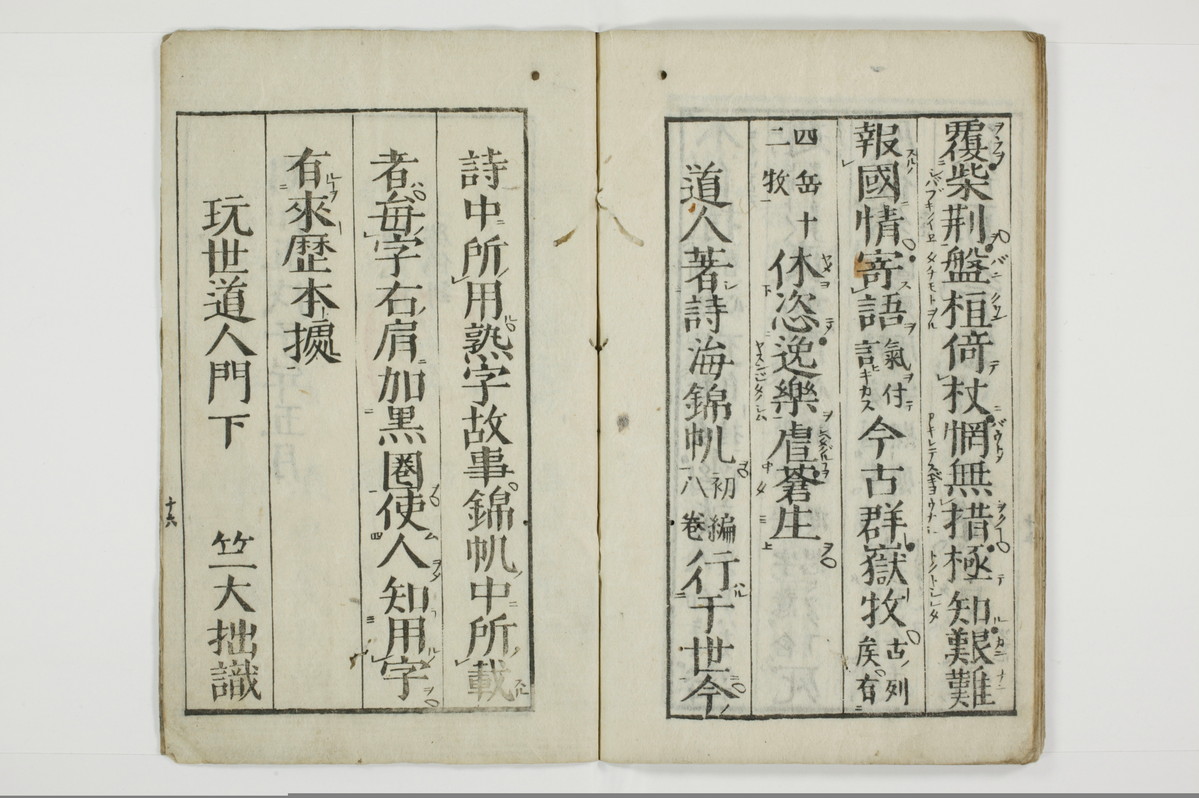 覆柴荆盤桓倚杖惘無措極知艱難
報國情寄語氣付言今古群嶽牧古列侯有
四岳十二牧休恣逸樂虐蒼生
道人著詩海錦帆初編八卷行于世今
詩中所用熟字故事錦帆中所載
者每字右肩加黑圈使人知用字
有來歷本據
玩世道人門下 竺大拙識
十六